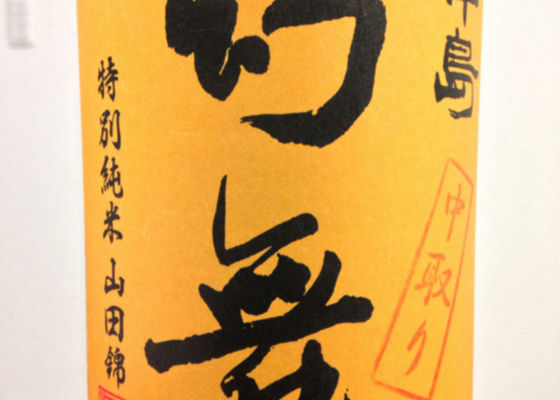 中島
中取り
幻舞
特別純米 山田錦